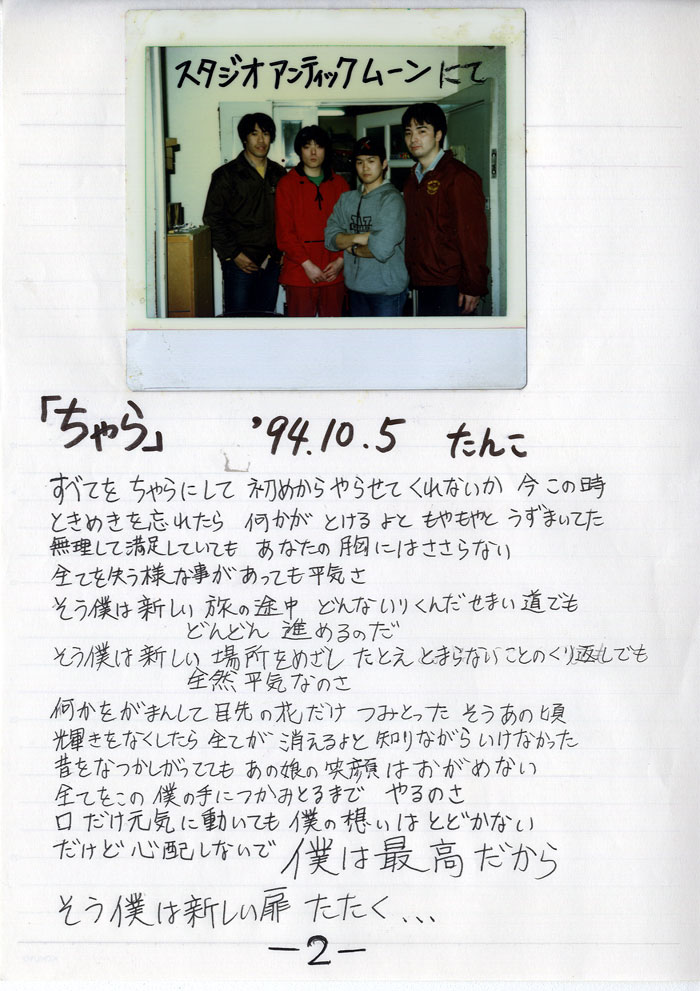 スタジオ アンティック ムーン にて
「ちゃら」 '94.10.5 たんこ
すべてを ちゃらにして 初めからやらせて くれないか 今 この時
ときめきを忘れたら 何かが とけるよと もやもやと うずまいてた
無理して満足していても あなたの胸にはささらない
全てを失う様な事があっても平気さ
そう僕は新しい 旅の途中 どんないりくんだせまい道でも
どんどん 進めるのだ
そう僕は新しい 場所をめざし たとえ とまらないことのくり返しでも
全然 平気なのさ
何かをがまんして 目先の花だけ つみとった そうあの頃
輝きをなくしたら 全てが 消えるよと 知りながら いけなかった
昔をなつかしがってても あの娘の笑顔はおがめない
全てをこの 僕の手につかみとるまで やるのさ
口だけ元気に動いても 僕の想いは とどかない
だけど 心配しないで 僕は最高だから
そう僕は新しい扉 たたく...
-2-